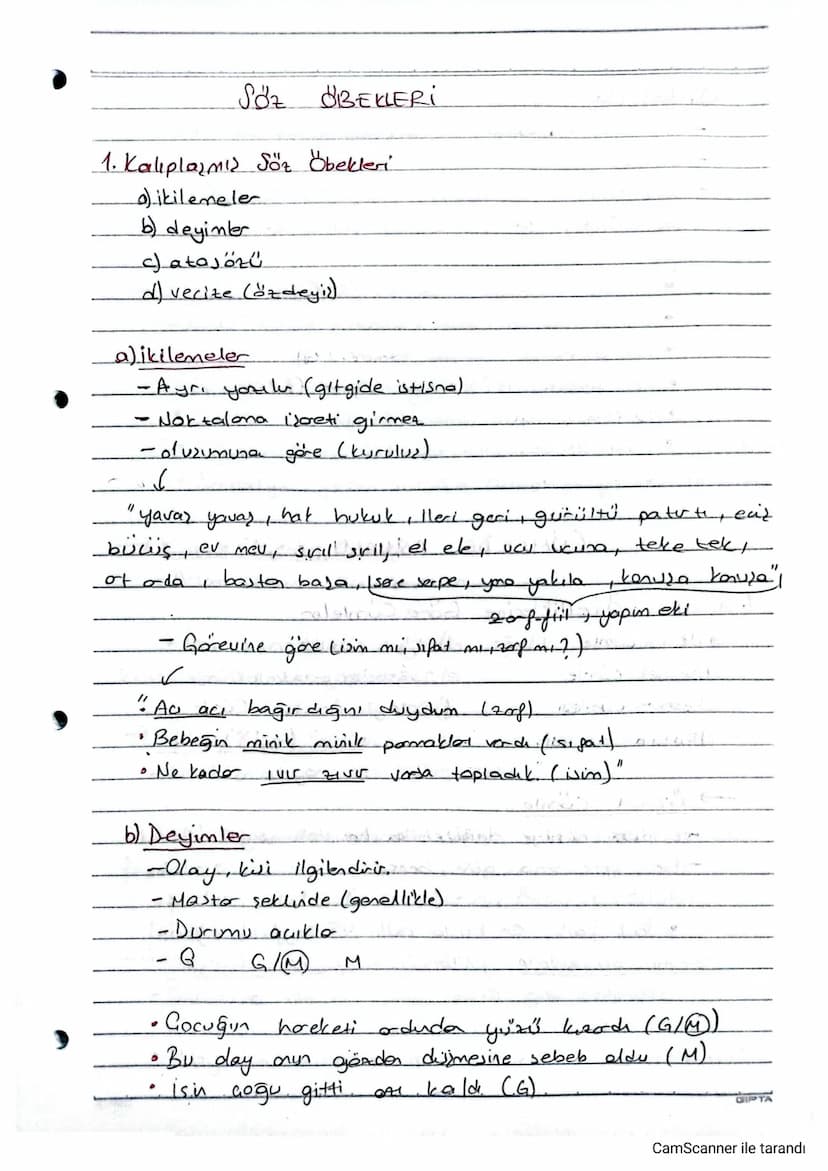 SÖZ ÖBEKLERİ
1. Kalıplaşmış Söz Öbekleri
a) ikilemeler
b) deyimler
c) atasözü
d) vecize (özdeyiş)
a) ikilemeler
- Ayrı yazılır (gitgide istisna)
- Noktalama işareti girmez
- oluşumuna göre (kuruluş)
"yavaş yavaş, hak hukuk, ileri geri, gürültü patırtı, eciş
bücüş, ev mev, şırıl şırıl, el ele, ucu ucuna, teke tek,
ot orda, baştan başa, sere serpe, yana yakıla, konuşa konuşa",
zarf-fiil, yapım eki
- Görevine göre (isim mi, sıfat mı, zarf mı?)
". Acı acı bağırdığını duydum (zarf)
• Bebeğin minik minik parmakları vardı (ısıpat)
• Ne kadar ıvır zıvır varsa topladık. (isim)"
b) Deyimler
- Olay, kişi ilgilendirir.
- Mastar şeklinde (genellikle)
- Durumu açıklar
- G G/M M
• Çocuğun hareketi ardında yüzü kızardı (G/M)
• Bu olay onun gözden düşmesine sebeb oldu (M)
• işin çoğu gitti azı kaldı (G).
GIPTA
CamScanner ile tarandı